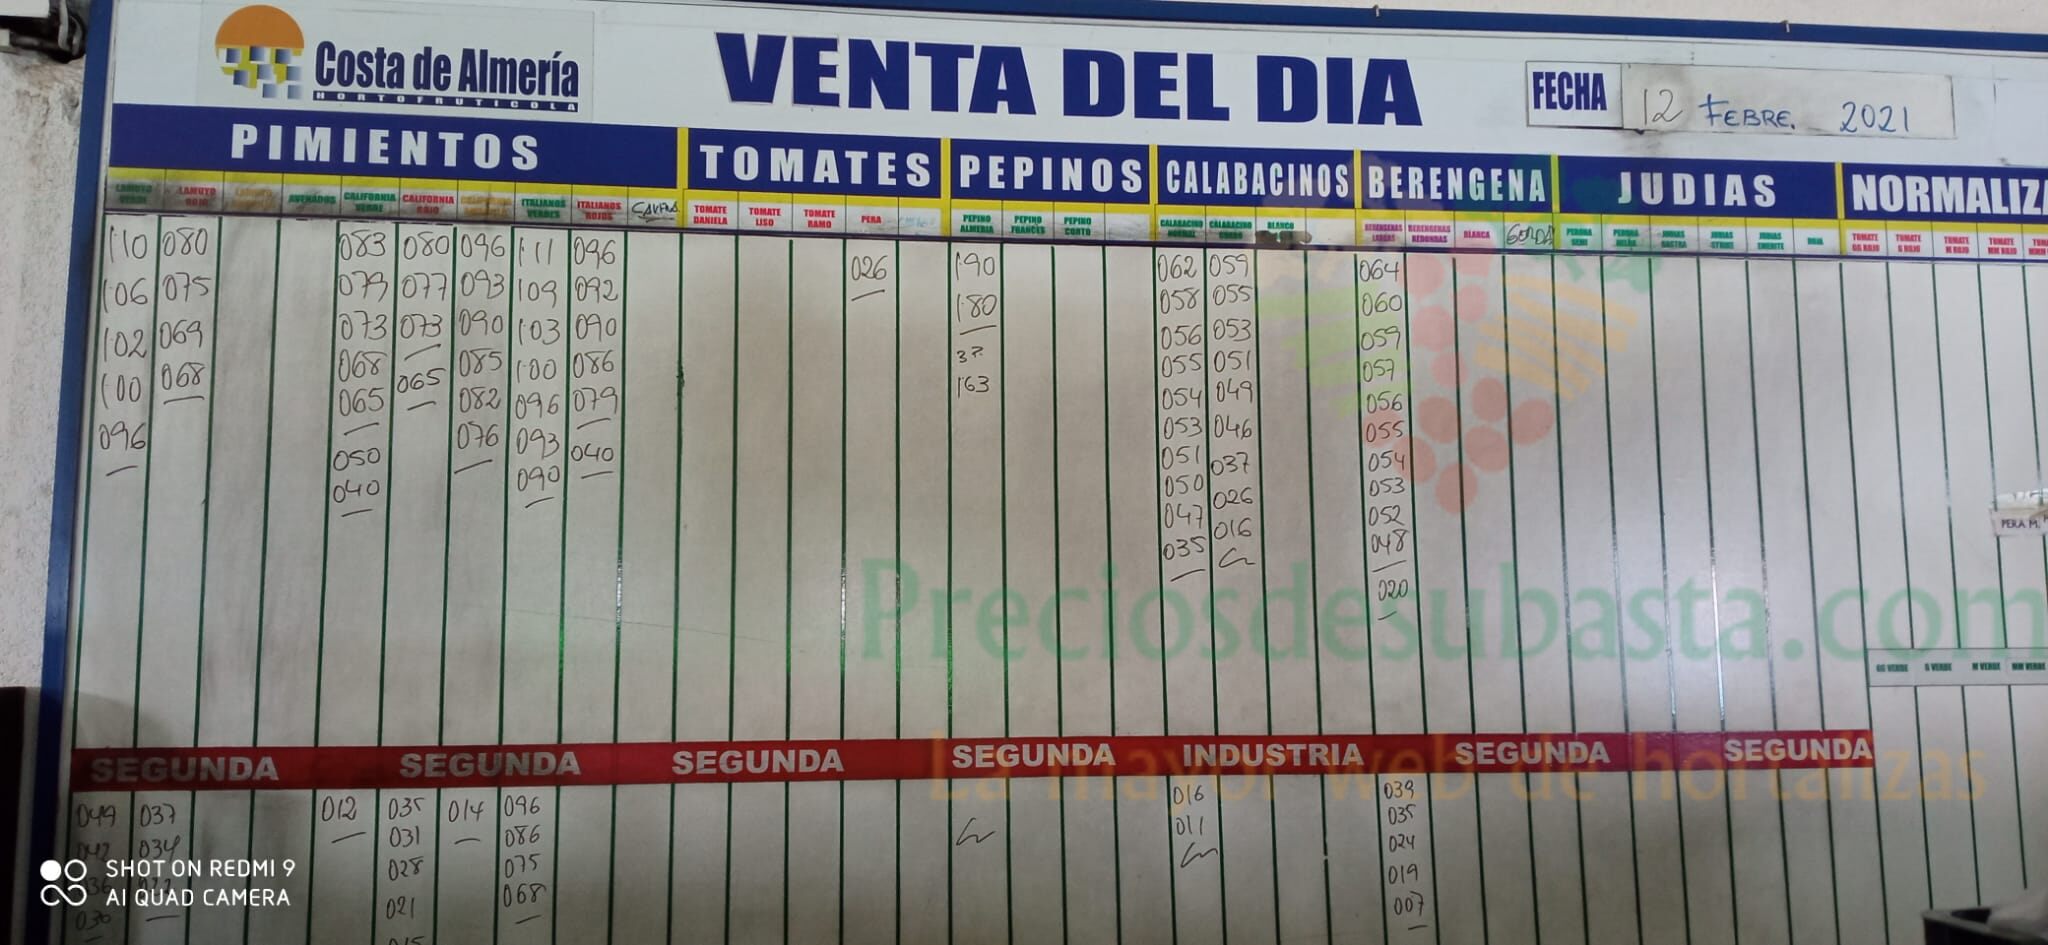 Costa de Almería
HORTOFRUTICOLA
VENTA DEL DIA
FECHA
12 FEBRE. 2021
PIMIENTOS
TOMATES
PEPINOS
CALABACINOS
BERENGENA
JUDIAS
NORMALIZA
LAMUYO VERDE
LAMUYO ROJO
AVENADOS
CALIFORNIA VERDE
CALIFORNIA ROJO
ITALIANOS VERDES
ITALIANOS ROJOS
TOMATE DANIELA
TOMATE LISO
TOMATE RAMO
PERA
PEPINO ALMERIA
PEPINO FRANCES
PEPINO CORTO
CALABACINO NORMAL
CALABACINO GORDO
BLANCO
BERENGENAS LARGAS
BERENGENAS REDONDAS
BLANCA
GORDA
PERONA SEMI
TOMATE GG ROJO
TOMATE G ROJO
TOMATE M ROJO
TOMATE MM ROJO
1·10 080 083 080 096 1·11 096 026 1·90 062 059 064
1·06 075 079 077 093 109 092 1·80 058 055 060
1·02 069 073 073 090 1·03 090 37. 056 053 059
1·00 068 068 065 085 1·00 086 1·63 055 051 057
096 065 082 096 079 054 049 056
050 076 093 040 053 046 055
040 090 051 037 054
050 026 053
047 016 052
035 048
020
PERA M.
GG VERDE G VERDE M VERDE MM VERDE
SEGUNDA SEGUNDA SEGUNDA SEGUNDA INDUSTRIA SEGUNDA SEGUNDA
049 037 012 035 014 096 016 039
042 034 031 086 011 035
028 075 024
021 068 019
030 007
Preciosdesubasta.com
La mayor web de hortalizas
SHOT ON REDMI 9
AI QUAD CAMERA